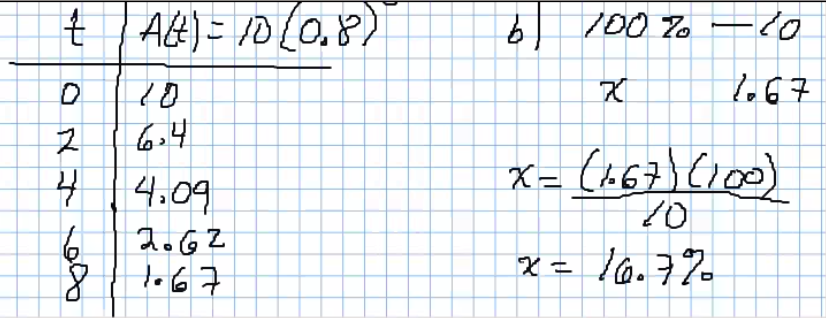 t A(t) = 10(0.8)
0 10
2 6.4
4 4.09
6 2.62
8 1.67
b) 100% — 10
x 1.67
x = (1.67)(100)
10
x = 16.7%